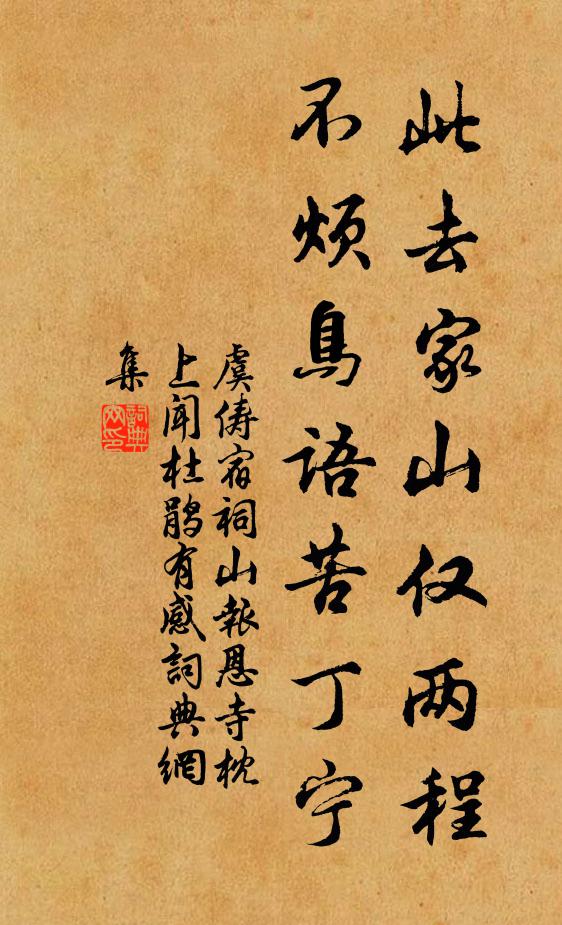 此去家山仅两程
不烦鸟语苦丁宁
虞俦宿祠山報恩寺枕
上闻杜鹃有感詞典網
集
詞典網印